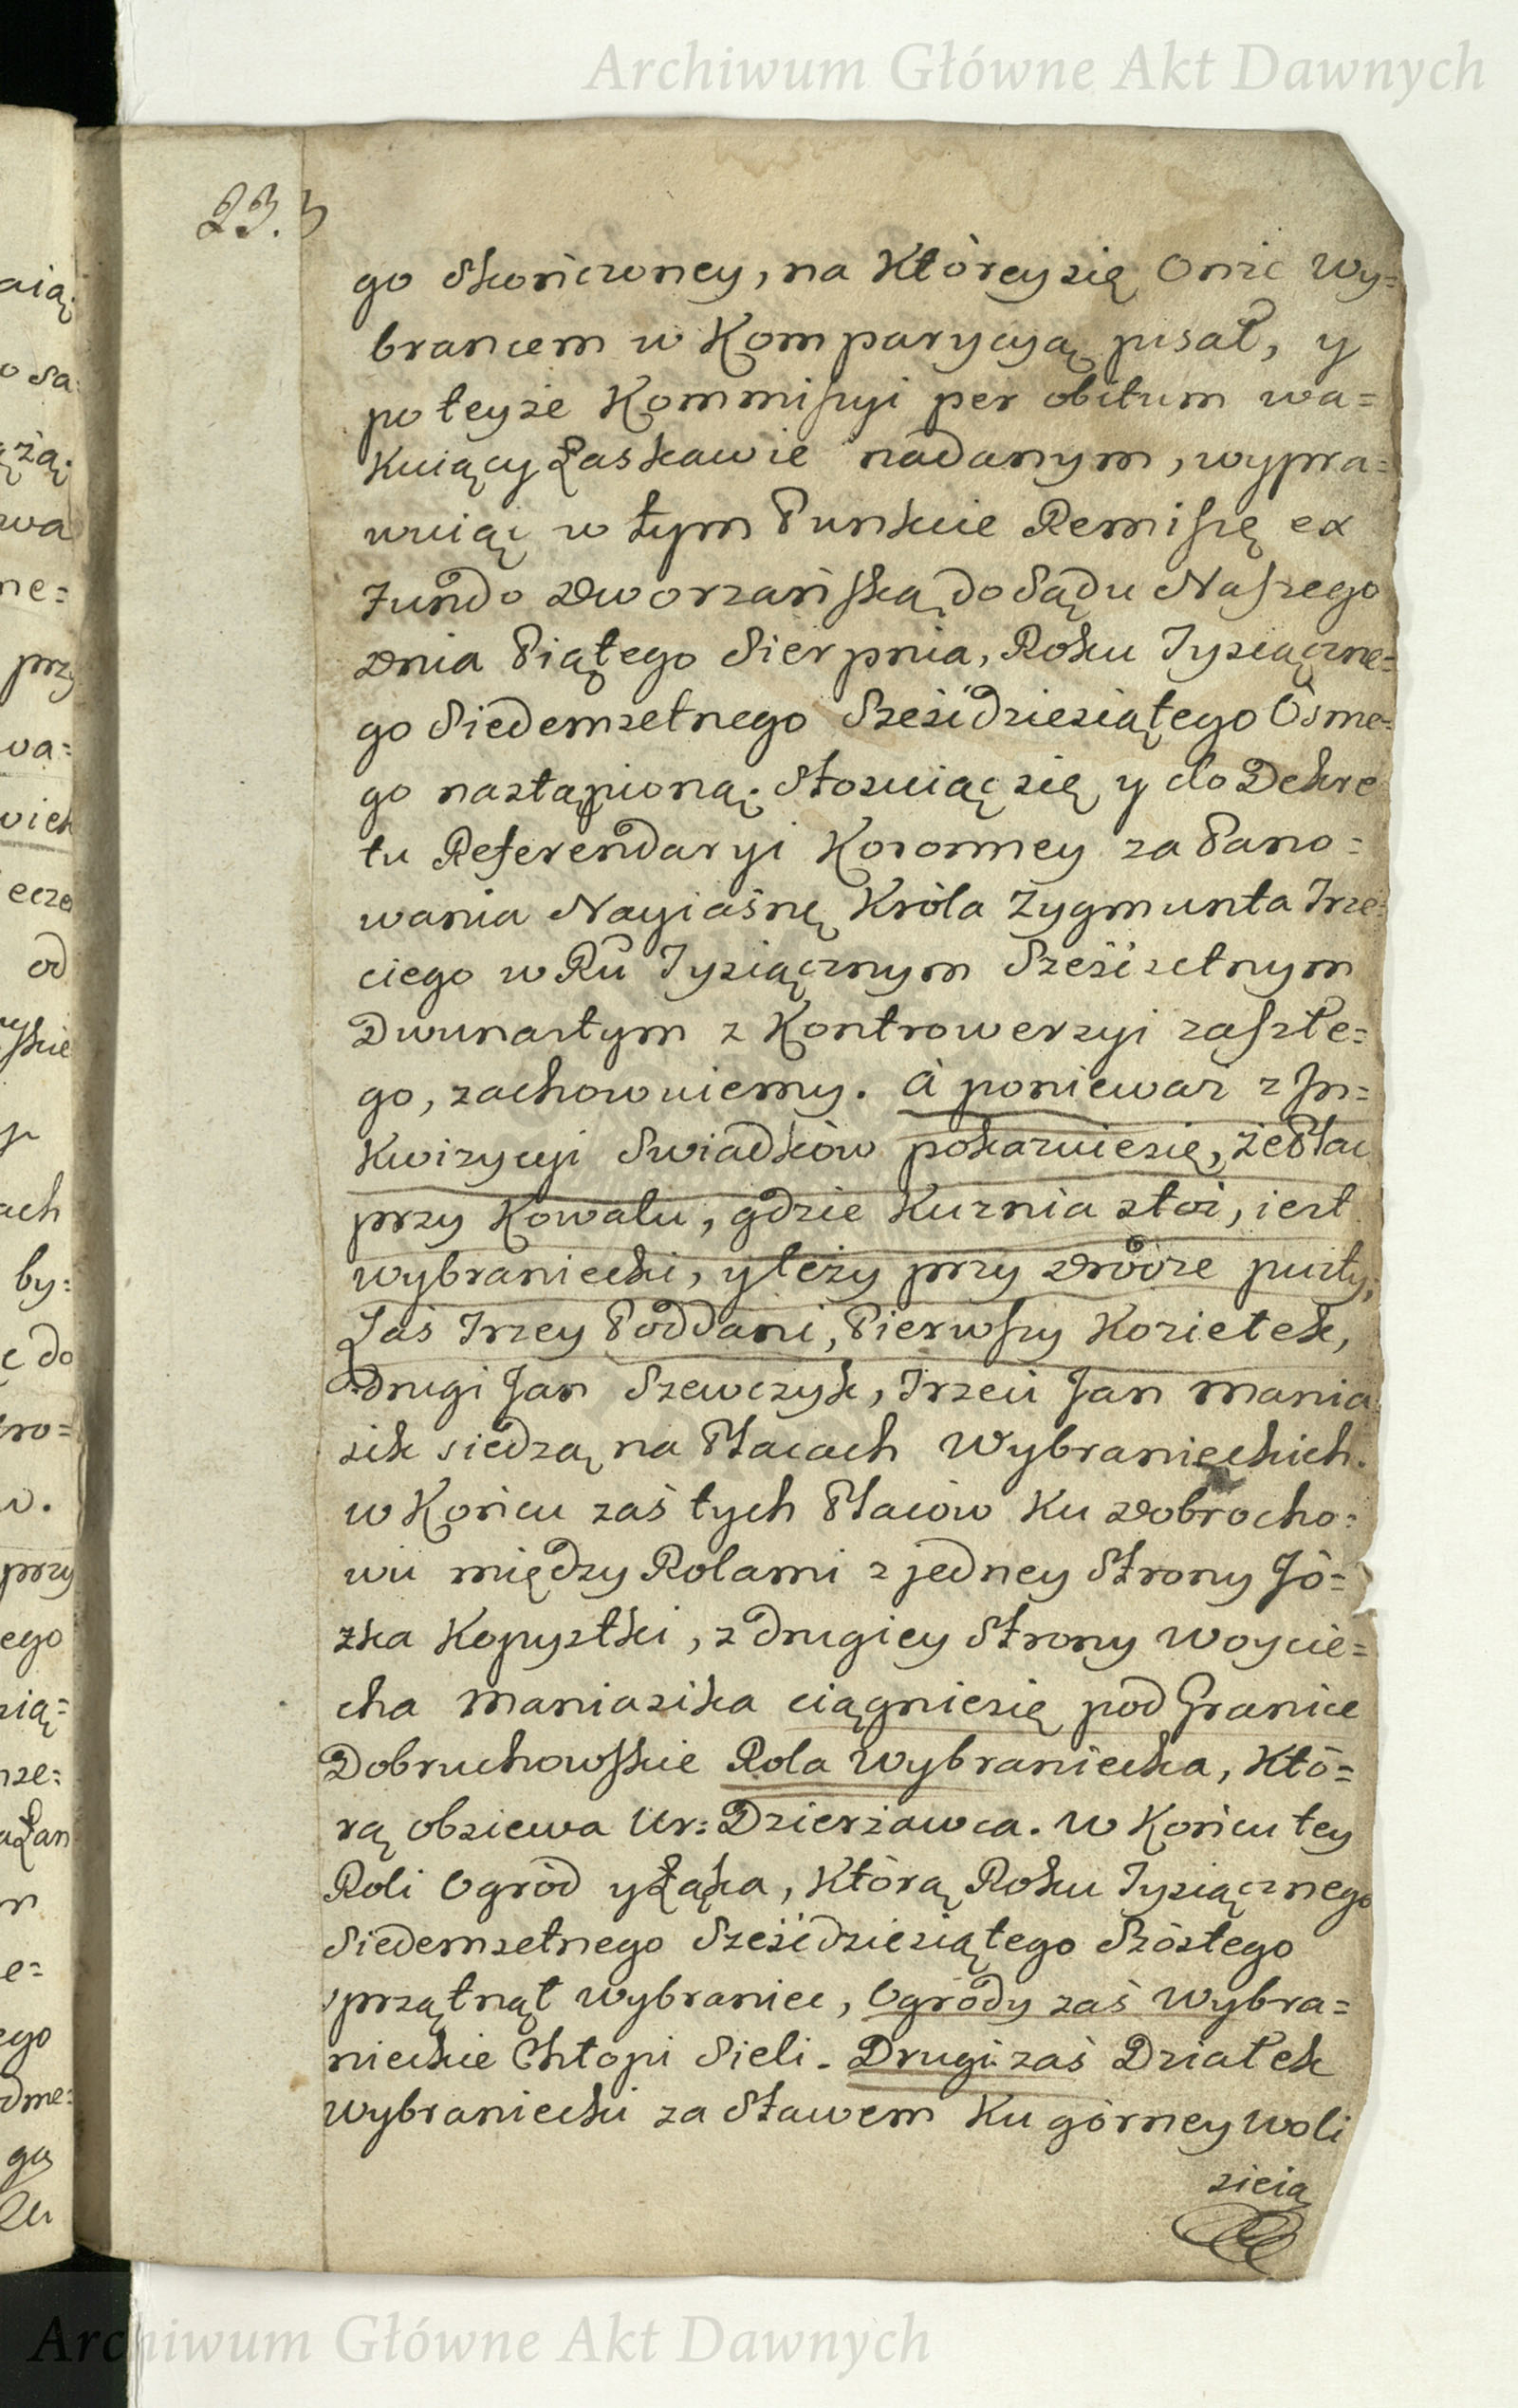 Archiwum Główne Akt Dawnych
23.
go skończoney, na Którey się Onże Wy=
brancem w Komparycyą pisał, y
po teyże Kommissyi per obitum wa=
Kuiący Łaskawie nadanym, wypra=
wuiąc w tym Punkcie Remissię ex
Fundo Dworzańską do Sądu Naszego
Dnia Piątego Sierpnia, Roku Tysiączne=
go Siedemsetnego Sześćdziesiątego Osme=
go nastąpioną. Stosuiąc się y do Dekre
tu Referendaryi Koronney za Pano=
wania Nayiaśnę Króla Zygmunta Trze=
ciego w Ru Tysiącznym Sześćsetnym
Dwunastym z Kontrowersyi zaszłe=
go, zachowuiemy. A ponieważ z In=
Kwizycyi Swiadków pokazuie się, że Plac
przy Kowalu, gdzie Kuznia stoi, iest
wybraniecki, y leży przy drodze pusty,
Zaś Trzey Poddani, Pierwszy Koziełek,
drugi Jan Szewczyk, Trzeci Jan Mania
sik siedzą na Placach Wybranieckich.
w Końcu zaś tych Placów Ku Dobrocho=
wu między Rolami z jedney Strony Jó=
zka Kopystki, z drugiey Strony Woycie=
cha Maniasika ciągnie się pod Granice
Dobruchowskie Rola Wybraniecka, Któ=
rą obsiewa Ur: Dzierżawca. W Końcu tey
Roli Ogród y Łąka, Którą Roku Tysiącznego
Siedemsetnego Sześćdziesiątego Szóstego
sprzątnął Wybraniec, Ogrody zaś Wybra=
nieckie Chłopi Sieli. Drugi zaś Działek
Wybraniecki za Stawem Ku górney Woli
Archiwum Główne Akt Dawnych